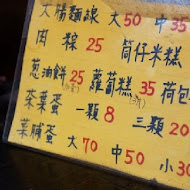 大腸麵線 大50 中35
肉粽 25 筒仔米糕
蔥油餅 25 蘿蔔糕 35 荷包
茶葉蛋 一顆 8 三顆 20
菜脯蛋 大70 中50 小30